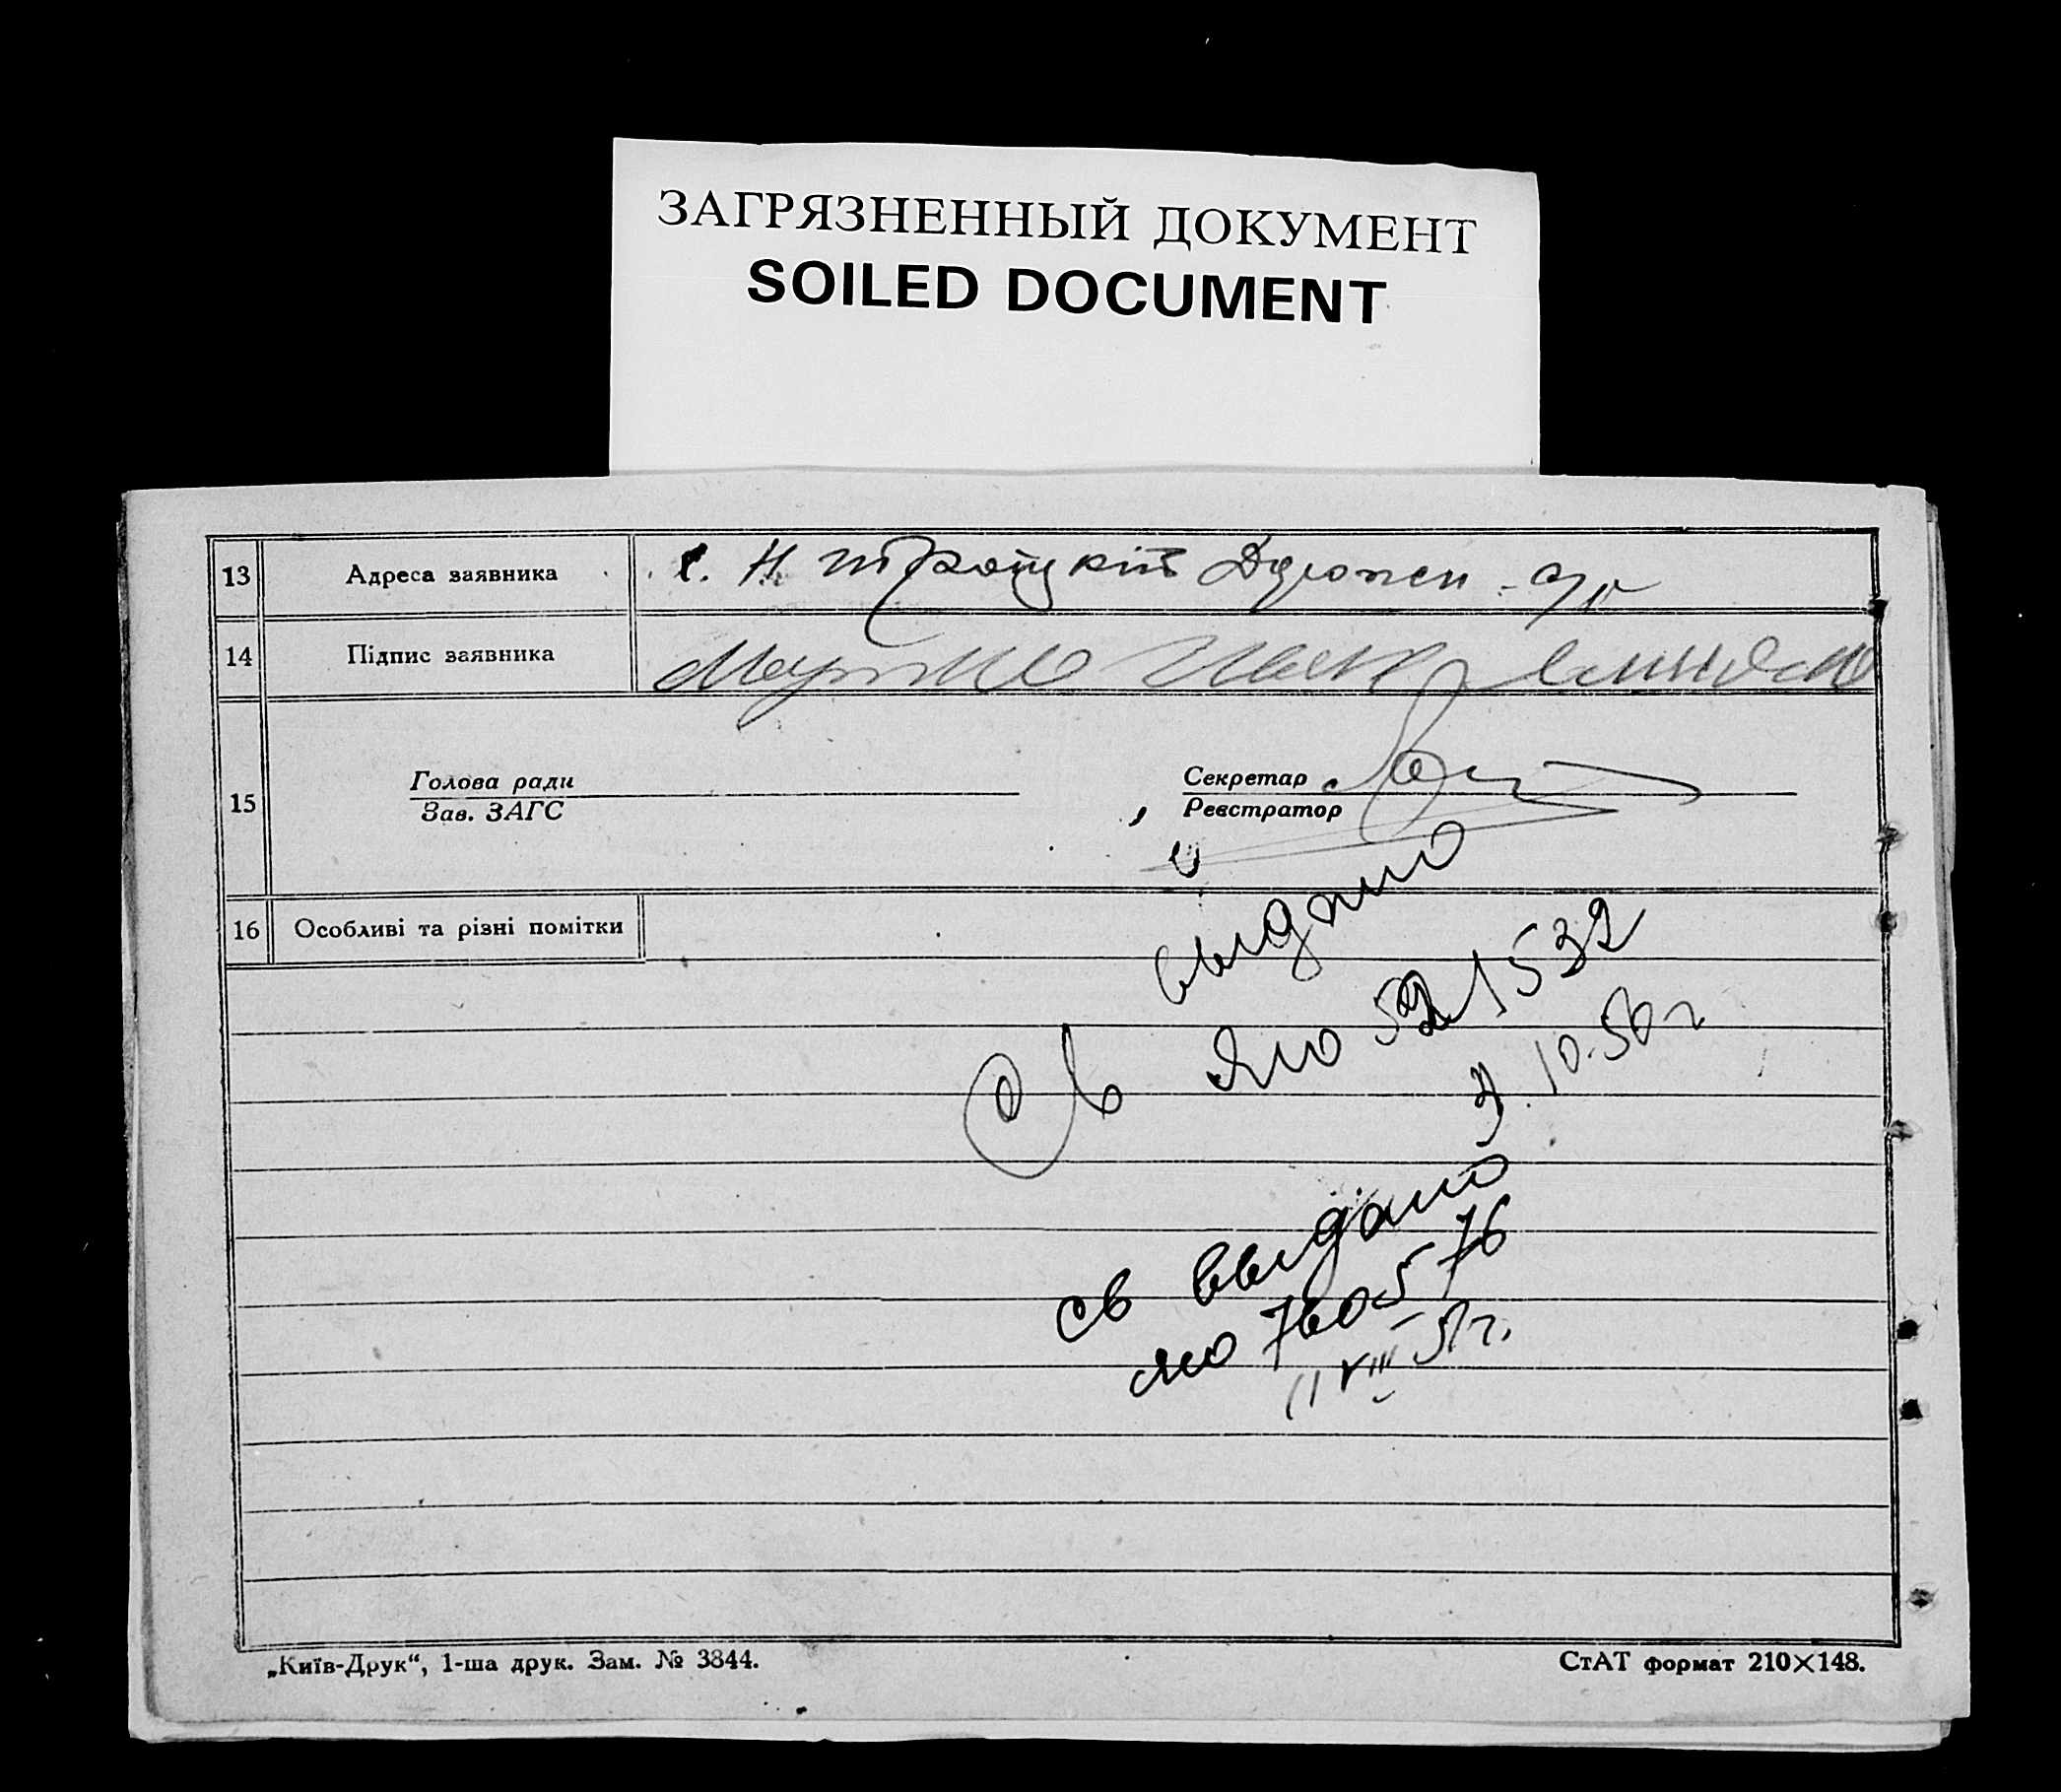 ЗАГРЯЗНЕННЫЙ ДОКУМЕНТ
SOILED DOCUMENT
13 Адреса заявника с. Н
14 Підпис заявника
15 Голова ради Секретар
Зав. ЗАГС Реєстратор
16 Особливі та різні помітки
выдано
Св ЯЮ 521532
10.50 г
св выдано
ЯЮ 760576
11 VIII 51 г.
„Київ-Друк“, 1-ша друк. Зам. № 3844. СтАТ формат 210×148.